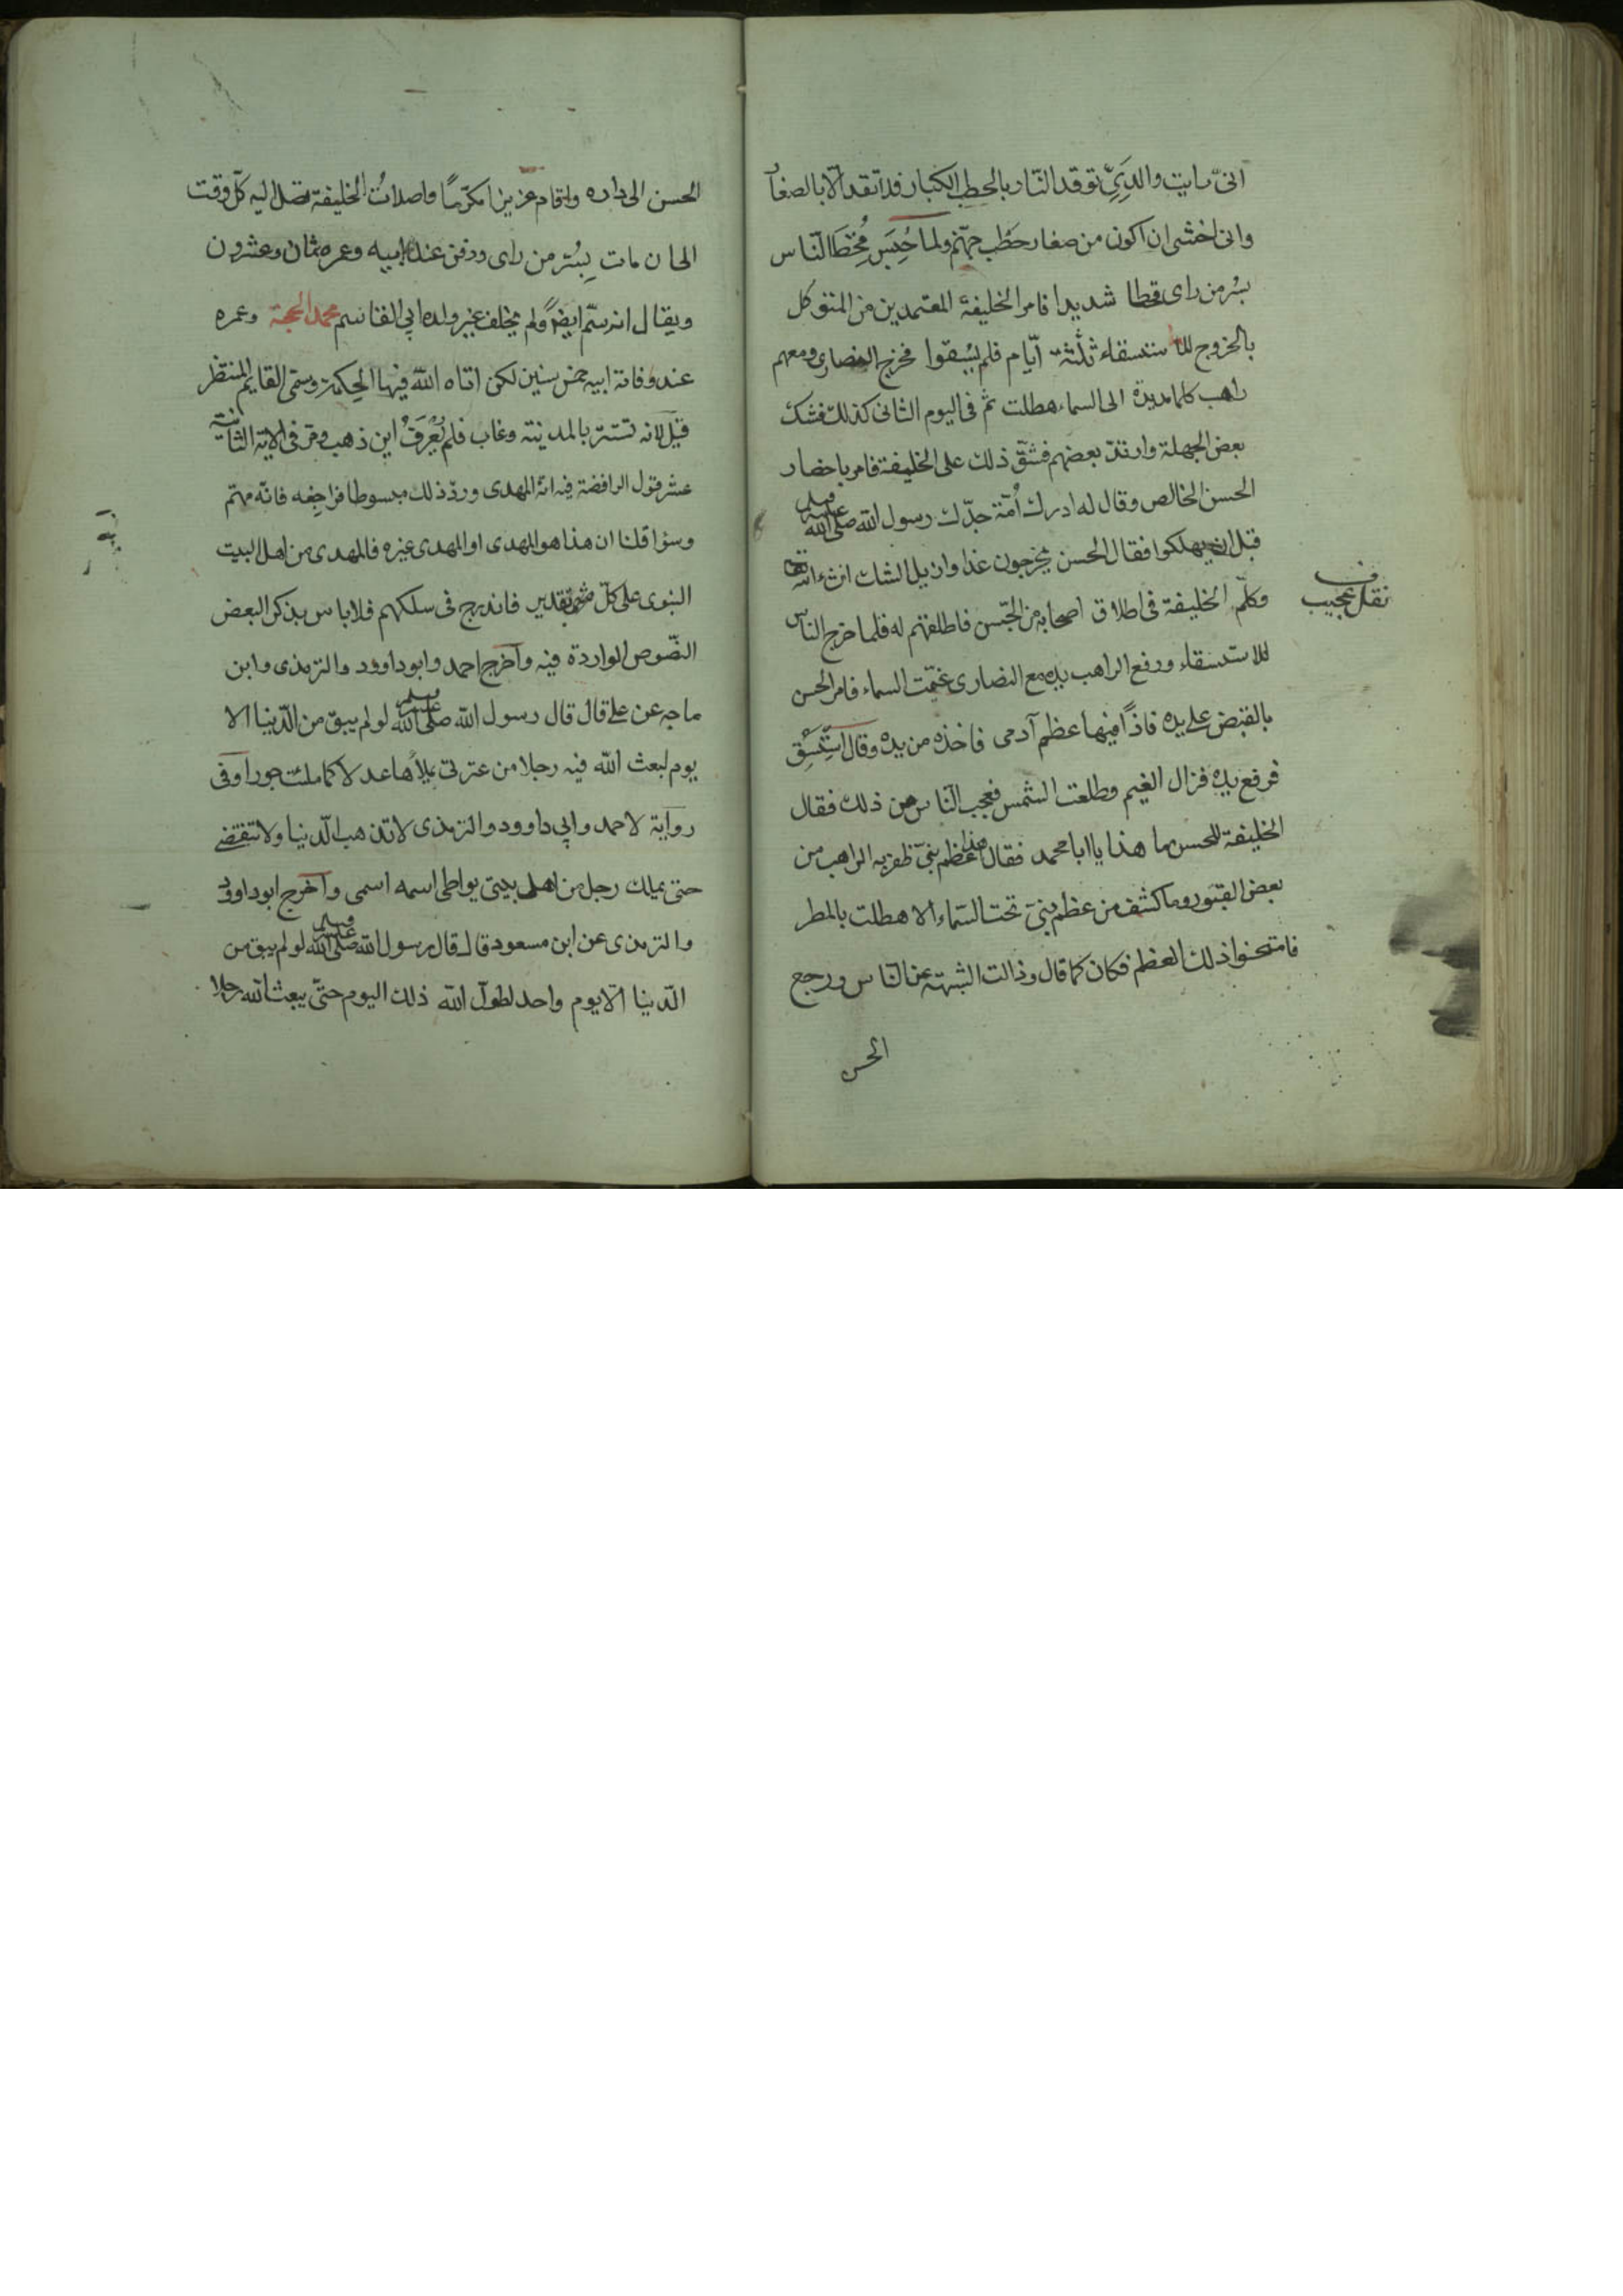 انّى رايت والدِىَّ توقد النّار بالحطب الكبار فلا تقد الّا بالصغار
وانى اخشى ان اكون من صغار حَطَب جهنّم ولما حُبِسَ قُحِطَ النّاس
بسُرمن راى قحطا شديدا فامر الخليفة المعتمد بن المتوكل
بالخروج للاستسقاء ثلثة ايّام فلم يُسقوا فخرج النصارى ومعهم
راهب كلما مديده الى السماء هطلت ثم فى اليوم الثانى كذلك فشك
بعض الجهلة وارتدّ بعضهم فشقّ ذلك على الخليفة فامر باحضار
الحسن الخالص وقال له ادرك اُمّة جدّك رسول الله صلى الله عليه وسلم
قبل ان يهلكوا فقال الحسن يخرجون غدا وازيل الشك ان شاء الله تعا
وكلّم الخليفة فى اطلاق اصحابه من الحبس فاطلقهم له فلما خرج الناس
للاستسقاء ورفع الراهب يده مع النصارى غيّمت السماء فامر الحسن
بالقبض على يده فاذًا فيها عظم آدمى فاخذه من يده وقال اسْتَسْقِ
فرفع يده فزال الغيم وطلعت الشمس فعجب النّاس من ذلك فقال
الخليفة للحسن ما هذا يا ابا محمد فقال هذا عظم نبىّ ظفر به الراهب من
بعض القبور وما كشف من عظم نبىّ تحت السّماء الا هطلت بالمطر
فامتحنوا ذلك العظم فكان كما قال وزالت الشبهة عن النّاس ورجع
الحسن
نقل عجيب
الحسن الى داره واقام عزيزا مكرّمًا وصلاتُ الخليفة تصل اليه كلّ وقت
الى ان مات بِسُرمن راى ودفن عند ابيه وعمره ثمان وعشرون
ويقال انه سُمّ ايضًا ولم يخلف غير ولده ابى القاسم محمد الحجة وعمره
عند وفاة ابيه خمس سنين لكن اتاه الله فيها الحِكمة وسمى القايم المنتظر
قيل لانه تستّر بالمدينة وغاب فلم يُعْرَفْ اين ذهب ومرّ فى الاية الثانية
عشر قول الرافضة فيه انه المهدى وردّ ذلك مبسوطا فراجِعْه فانّه مهمّ
وسوا قلنا ان هذا هو المهدى او المهدى غيره فالمهدى من اهل البيت
النبوى على كلّ تقدير فاندرج فى سلكهم فلا باس بذكر البعض
النّصوص الواردة فيه وآخرج احمد وابو داوود والترمذى وابن
ماجه عن على قال قال رسول الله صلى الله عليه وسلم لو لم يبق من الدّنيا الا
يوم لبعث الله فيه رجلا من عترتى يملأها عدلا كما ملئت جورا وفى
رواية لاحمد وابى داوود والترمذى لا تذهب الدّنيا ولا تنقضى
حتى يملك رجل من اهل بيتى يواطى اسمه اسمى واخرج ابو داوود
والترمذى عن ابن مسعود قال قال رسول الله صلى الله عليه وسلم لو لم يبق من
الدّنيا الّا يوم واحد لطوّل الله ذلك اليوم حتّى يبعث الله رجلا